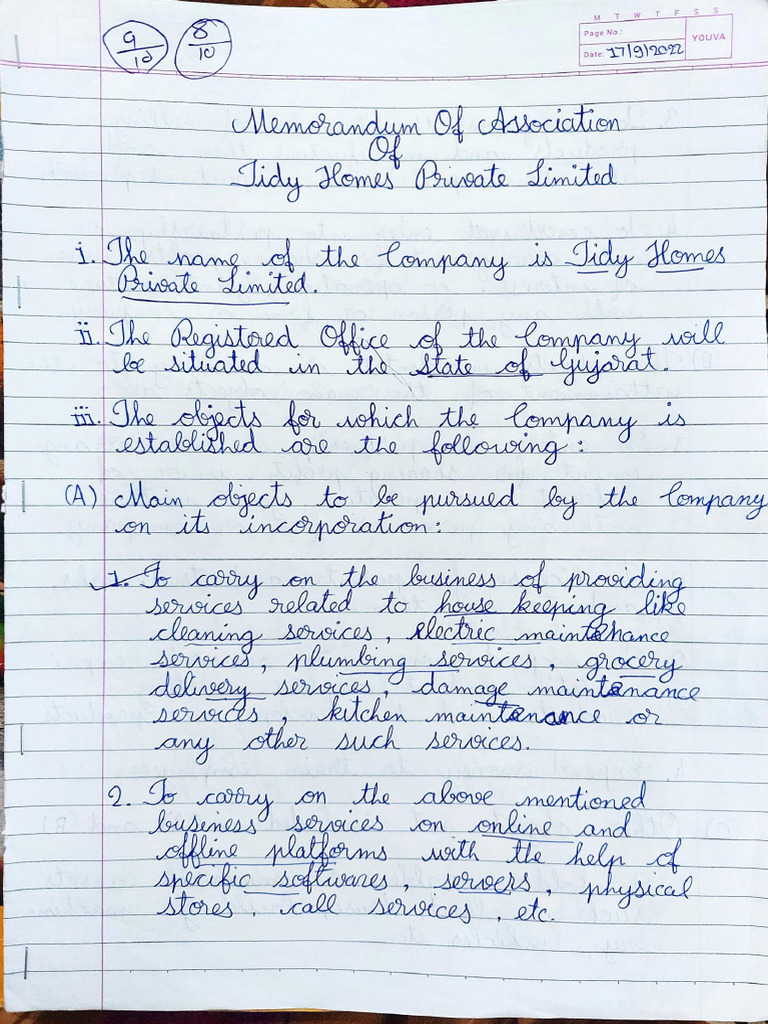 9/10 8/10
M T W T F S S
Page No.:
YOUVA
Date: 17/9/2022
Memorandum Of Association
Of
Tidy Homes Private Limited
i. The name of the Company is Tidy Homes
Private Limited.
ii. The Registered Office of the Company will
be situated in the State of Gujarat.
iii. The objects for which the Company is
established are the following:
(A) Main objects to be pursued by the Company
on its incorporation:
1. To carry on the business of providing
services related to house keeping like
cleaning services, electric maintenance
services, plumbing services, grocery
delivery services, damage maintenance
services, kitchen maintenance or
any other such services.
2. To carry on the above mentioned
business services on online and
offline platforms with the help of
specific softwares, servers, physical
stores, call services, etc.